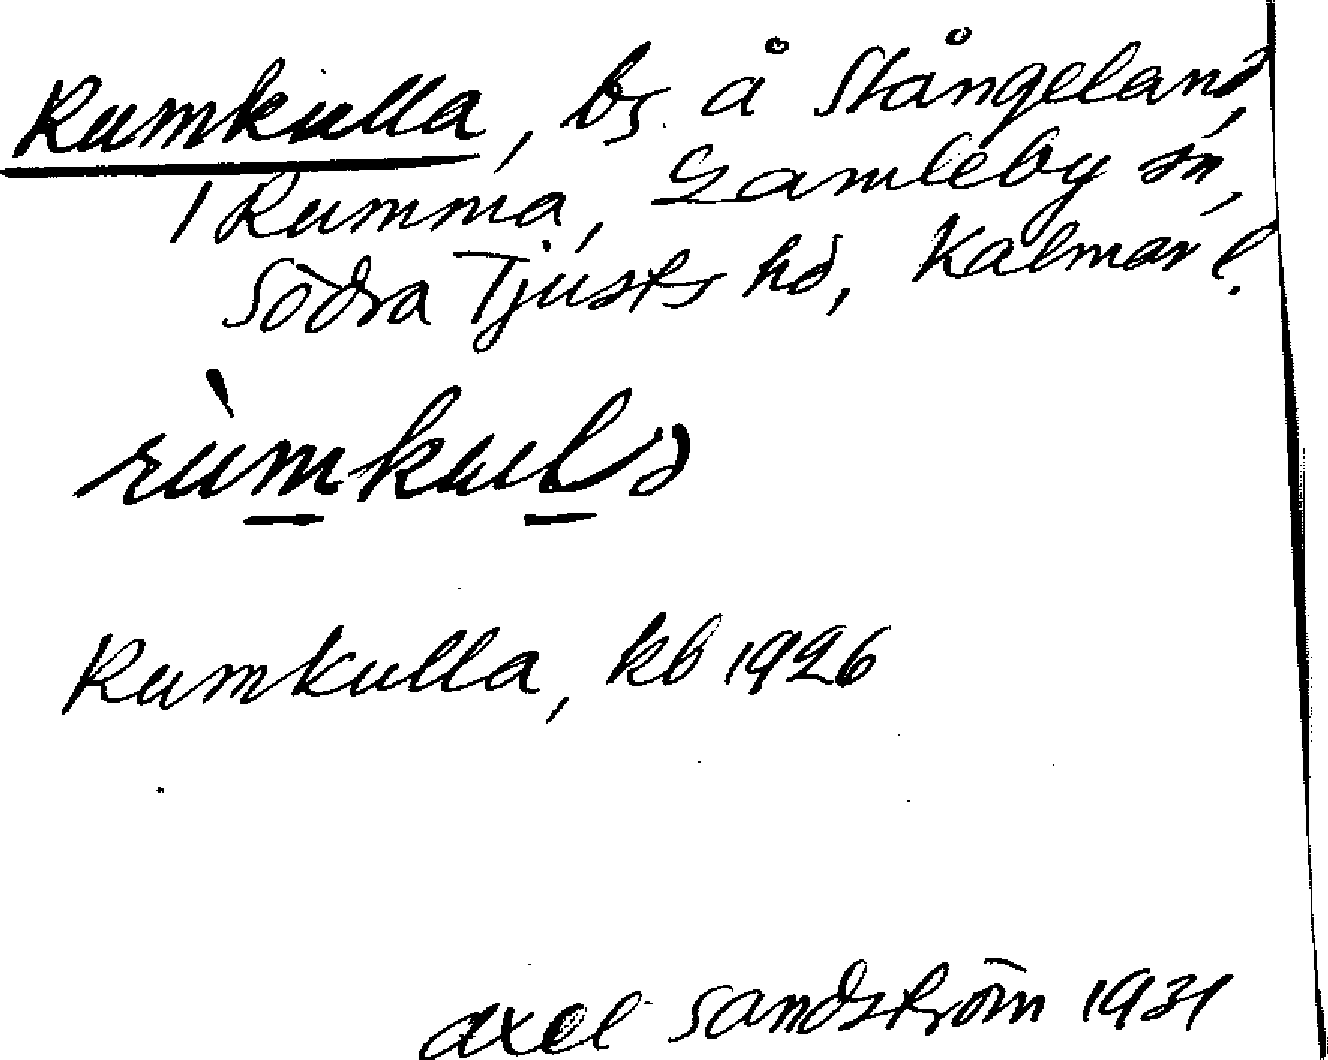 Rumkulla, bs. å Stångeland,
1 Rumma, Gamleby sn,
Södra Tjusts hd, Kalmar l.
rùmkulə
Rumkulla, kb 1926
Axel Sandström 1931